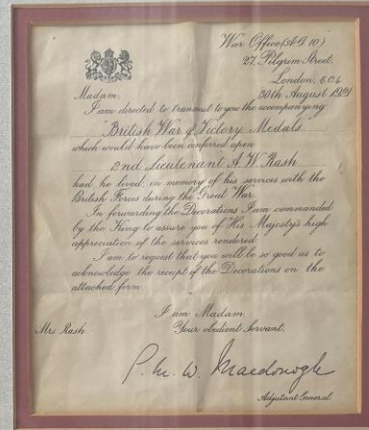 War Office (A.G.10)
27, Pilgrim Street,
London, E.C.4
30th August 1921
Madam,
I am directed to transmit to you the accompanying
British War & Victory Medals
which would have been conferred upon
2nd Lieutenant A. W. Rash
had he lived, in memory of his services with the
British Forces during the Great War.
In forwarding the Decorations I am commanded
by the King to assure you of His Majesty's high
appreciation of the services rendered.
I am to request that you will be so good as to
acknowledge the receipt of the Decorations on the
attached form.
I am Madam
Your obedient Servant,
Mrs Rash
G. M. W. Macdonogh
Adjutant General